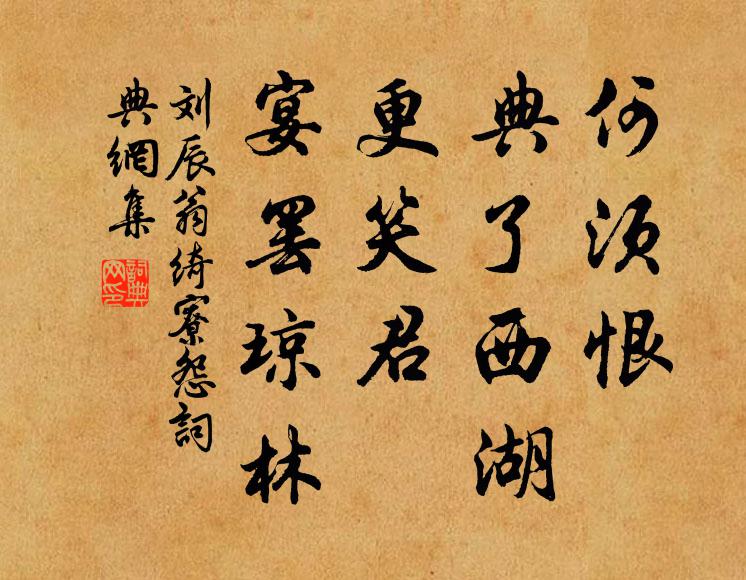 何须恨
典了西湖
更笑君
宴罢琼林
刘辰翁绮寮怨词
典網集
詞典
网印